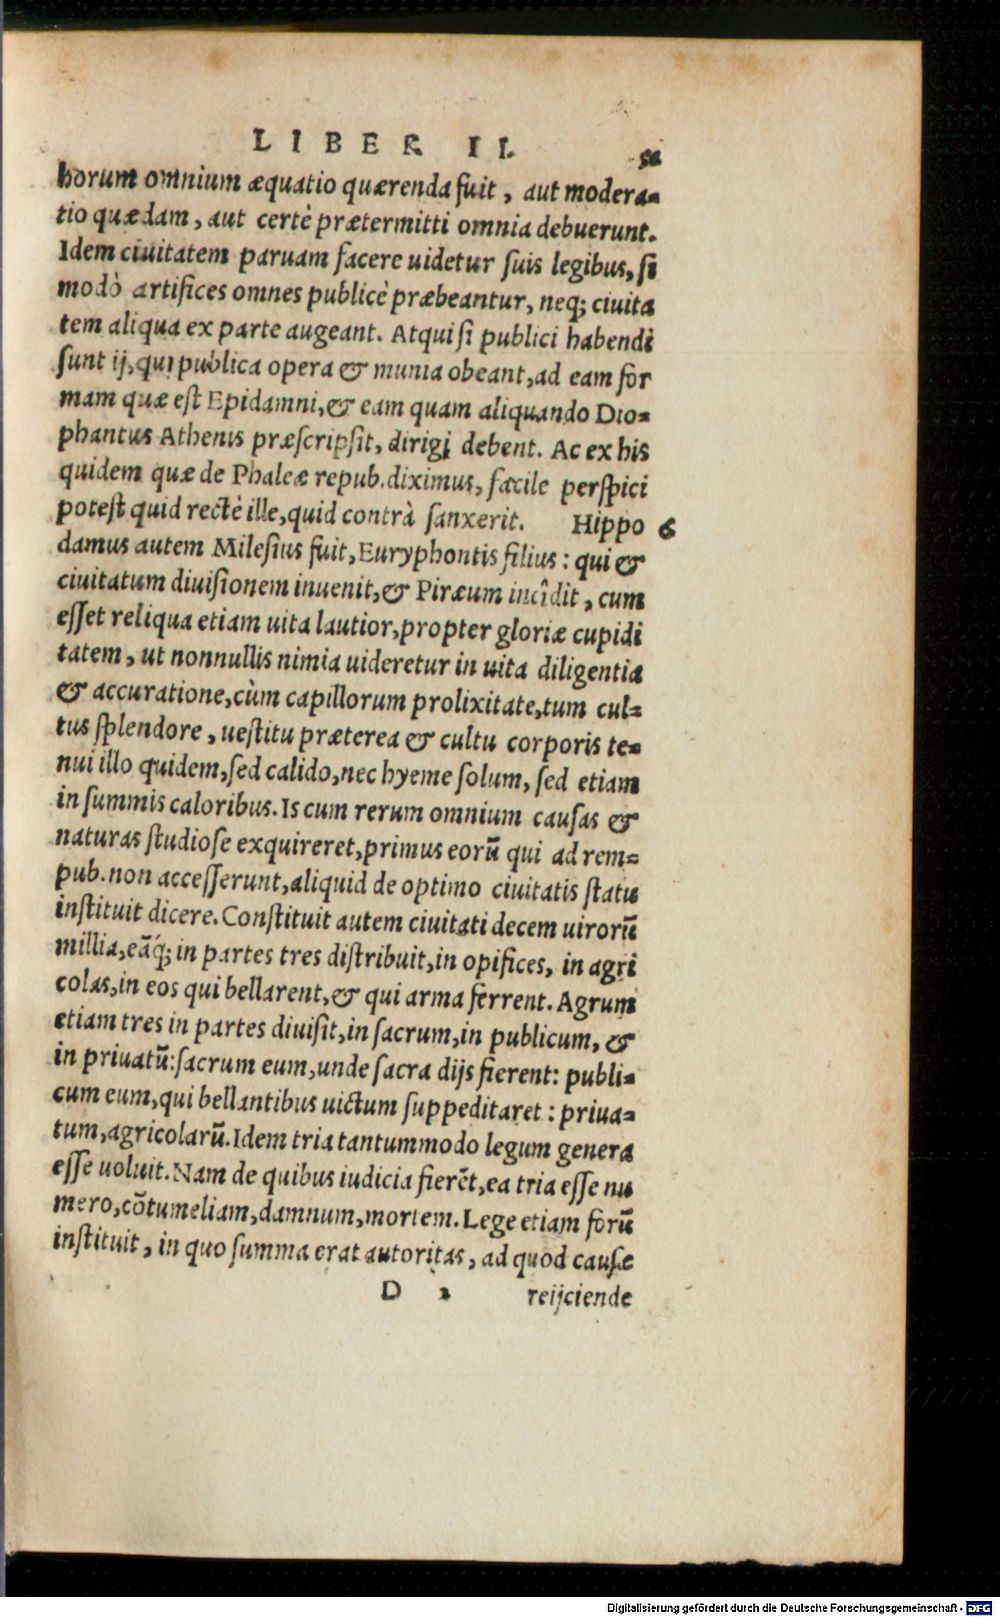 LIBER II.
horum omnium æquatio quærenda fuit, aut modera-
tio quædam, aut certè prætermitti omnia debuerunt.
Idem ciuitatem paruam facere uidetur suis legibus, si
modò artifices omnes publicè præbeantur, neq; ciuita
tem aliqua ex parte augeant. Atqui si publici habendi
sunt ij, qui publica opera & munia obeant, ad eam for
mam quæ est Epidamni, & eam quam aliquando Dio-
phantus Athenis præscripsit, dirigi debent. Ac ex his
quidem quæ de Phaleæ repub. diximus, facile perspici
potest quid rectè ille, quid contrà sanxerit. Hippo 6
damus autem Milesius fuit, Euryphontis filius: qui &
ciuitatum diuisionem inuenit, & Piræum incîdit, cum
esset reliqua etiam uita lautior, propter gloriæ cupidi
tatem, ut nonnullis nimia uideretur in uita diligentia
& accuratione, cùm capillorum prolixitate, tum cul-
tus splendore, uestitu præterea & cultu corporis te-
nui illo quidem, sed calido, nec hyeme solum, sed etiam
in summis caloribus. Is cum rerum omnium causas &
naturas studiose exquireret, primus eorū qui ad rem-
pub. non accesserunt, aliquid de optimo ciuitatis statu
instituit dicere. Constituit autem ciuitati decem uirorū
millia, eāq́; in partes tres distribuit, in opifices, in agri
colas, in eos qui bellarent, & qui arma ferrent. Agrum
etiam tres in partes diuisit, in sacrum, in publicum, &
in priuatū: sacrum eum, unde sacra dijs fierent: publi-
cum eum, qui bellantibus uictum suppeditaret: priua-
tum, agricolarū. Idem tria tantummodo legum genera
esse uoluit. Nam de quibus iudicia fierēt, ea tria esse nu
mero, cōtumeliam, damnum, mortem. Lege etiam forū
instituit, in quo summa erat autoritas, ad quod causæ
D 2 reijciende
Digitalisierung gefördert durch die Deutsche Forschungsgemeinschaft - DFG